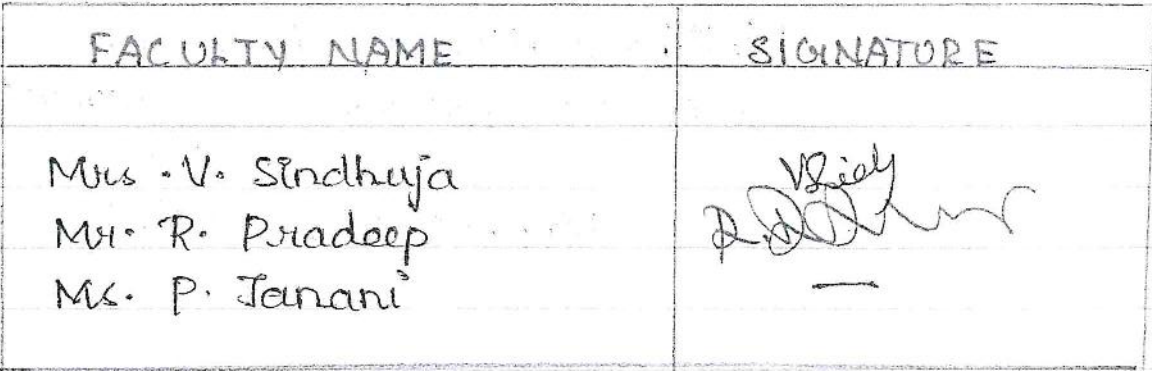 FACULTY NAME SIGNATURE
Mrs. V. Sindhuja
Mr. R. Pradeep
Ms. P. Janani —